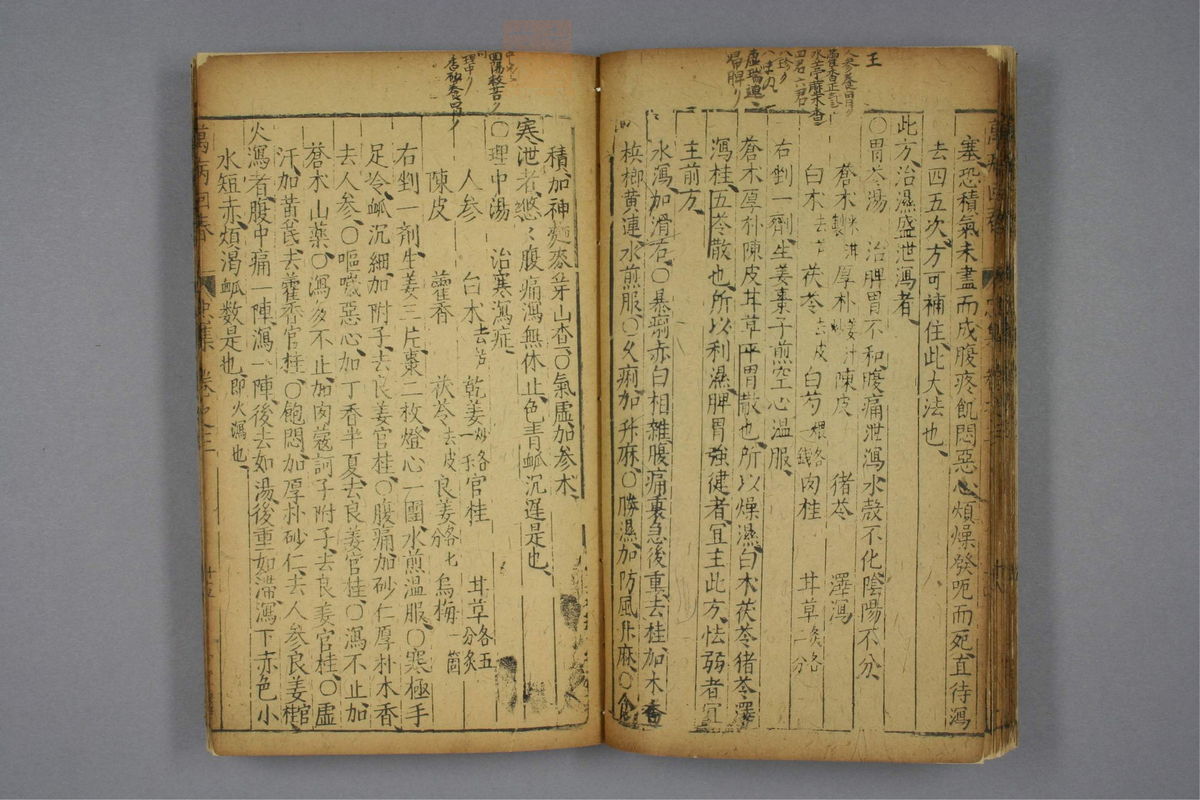 塞恐積氣未盡而成腹疼飢悶惡心煩燥發呃而死宜待瀉
去四五次方可補住此大法也
此方治濕盛泄瀉者
○胃苓湯 治脾胃不和腹痛泄瀉水穀不化陰陽不分
蒼朮米泔製 厚朴姜汁炒 陳皮 猪苓 澤瀉
白朮去芦 茯苓去皮 白芍煨各一錢 肉桂 甘草炙各二分
右剉一劑生姜棗子煎空心温服
蒼朮厚朴陳皮甘草平胃散也所以燥濕白朮茯苓猪苓澤
瀉桂五苓散也所以利濕脾胃強健者宜主此方怯弱者宜
主前方
水瀉加滑石○暴痢赤白相雜腹痛裏急後重去桂加木香
梹榔黄連水煎服○久痢加升麻○勝濕加防風升麻○食
積加神麯麥芽山查○氣虛加參朮
寒泄者悠〻腹痛瀉無休止色青脉沉遲是也
○理中湯 治寒瀉症
人參 白朮去芦 乾姜炒各一錢 官桂 甘草炙各五分
陳皮 藿香 茯苓去皮 良姜各七分 烏梅一箇
右剉一劑生姜三片棗二枚燈心一團水煎温服○寒極手
足冷脉沉細加附子去良姜官桂○腹痛加砂仁厚朴木香
去人參○嘔噦惡心加丁香半夏去良姜官桂○瀉不止加
蒼朮山藥○瀉多不止加肉蔻訶子附子去良姜官桂○虛
汗加黄芪去藿香官桂○飽悶加厚朴砂仁去人參良姜官桂
火瀉者腹中痛一陣瀉一陣後去如湯後重如滯瀉下赤色小
水短赤煩渴脉数是也即火瀉也
王
人參養胃ク
藿香正氣
四君六君
八珍ク
歸脾ク
理中ク
萬病回春
卷之三